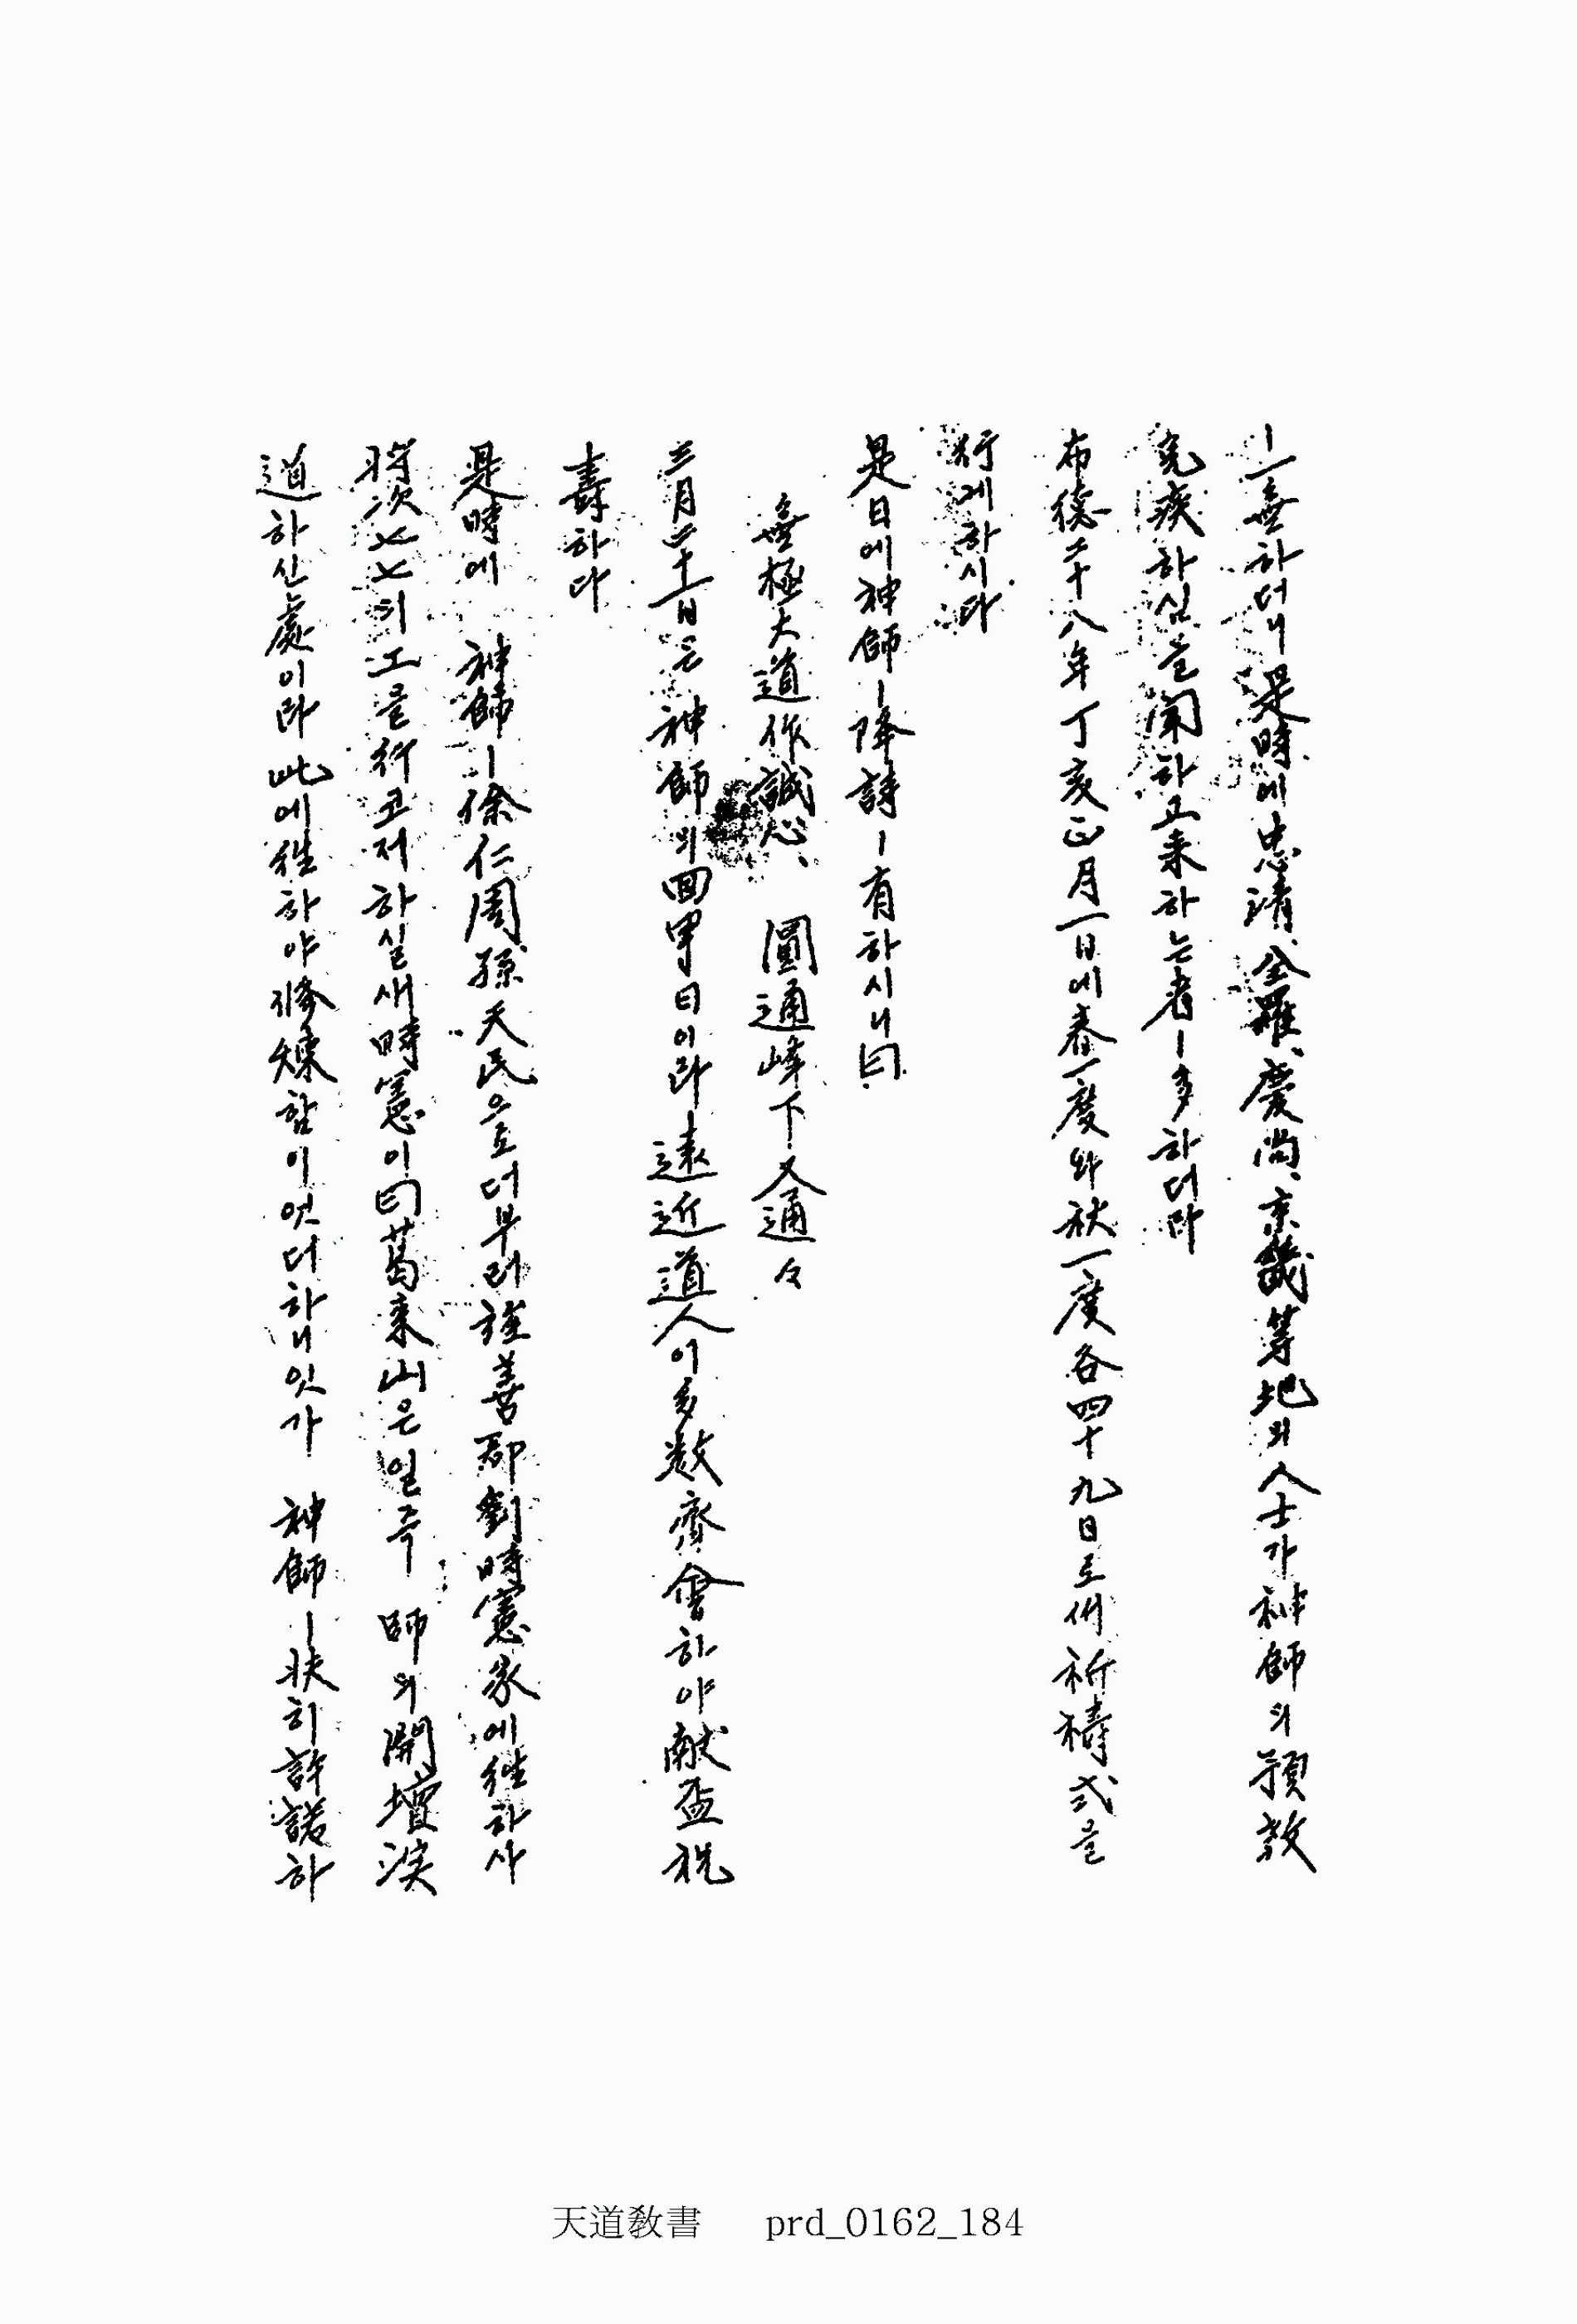 ㅣ一無하더니是時에忠淸、全羅、慶尙、京畿等地의人士가神師의預敎
免疾하심을聞하고来하는者ㅣ多하더라
布德二十八年丁亥正月一日에春一度와秋一度各四十九日로併祈禱式을
行케하시다
是日에神師ㅣ降詩ㅣ有하시니曰
無極大道作誠心、圓通峰下又通々
三月二十一日은神師의回甲日이라遠近道人이多数齊會하야献盃祝
壽하다
是時에 神師ㅣ徐仁周孫天民으로더부러旌善郡劉時憲家에往하사
將次七七의工을行코저하실새時憲이曰葛来山은일즉 師의開壇演
道하산處이라此에往하야修煉함이엇더하니잇가 神師ㅣ快히許諾하
天道敎書 prd_0162_184